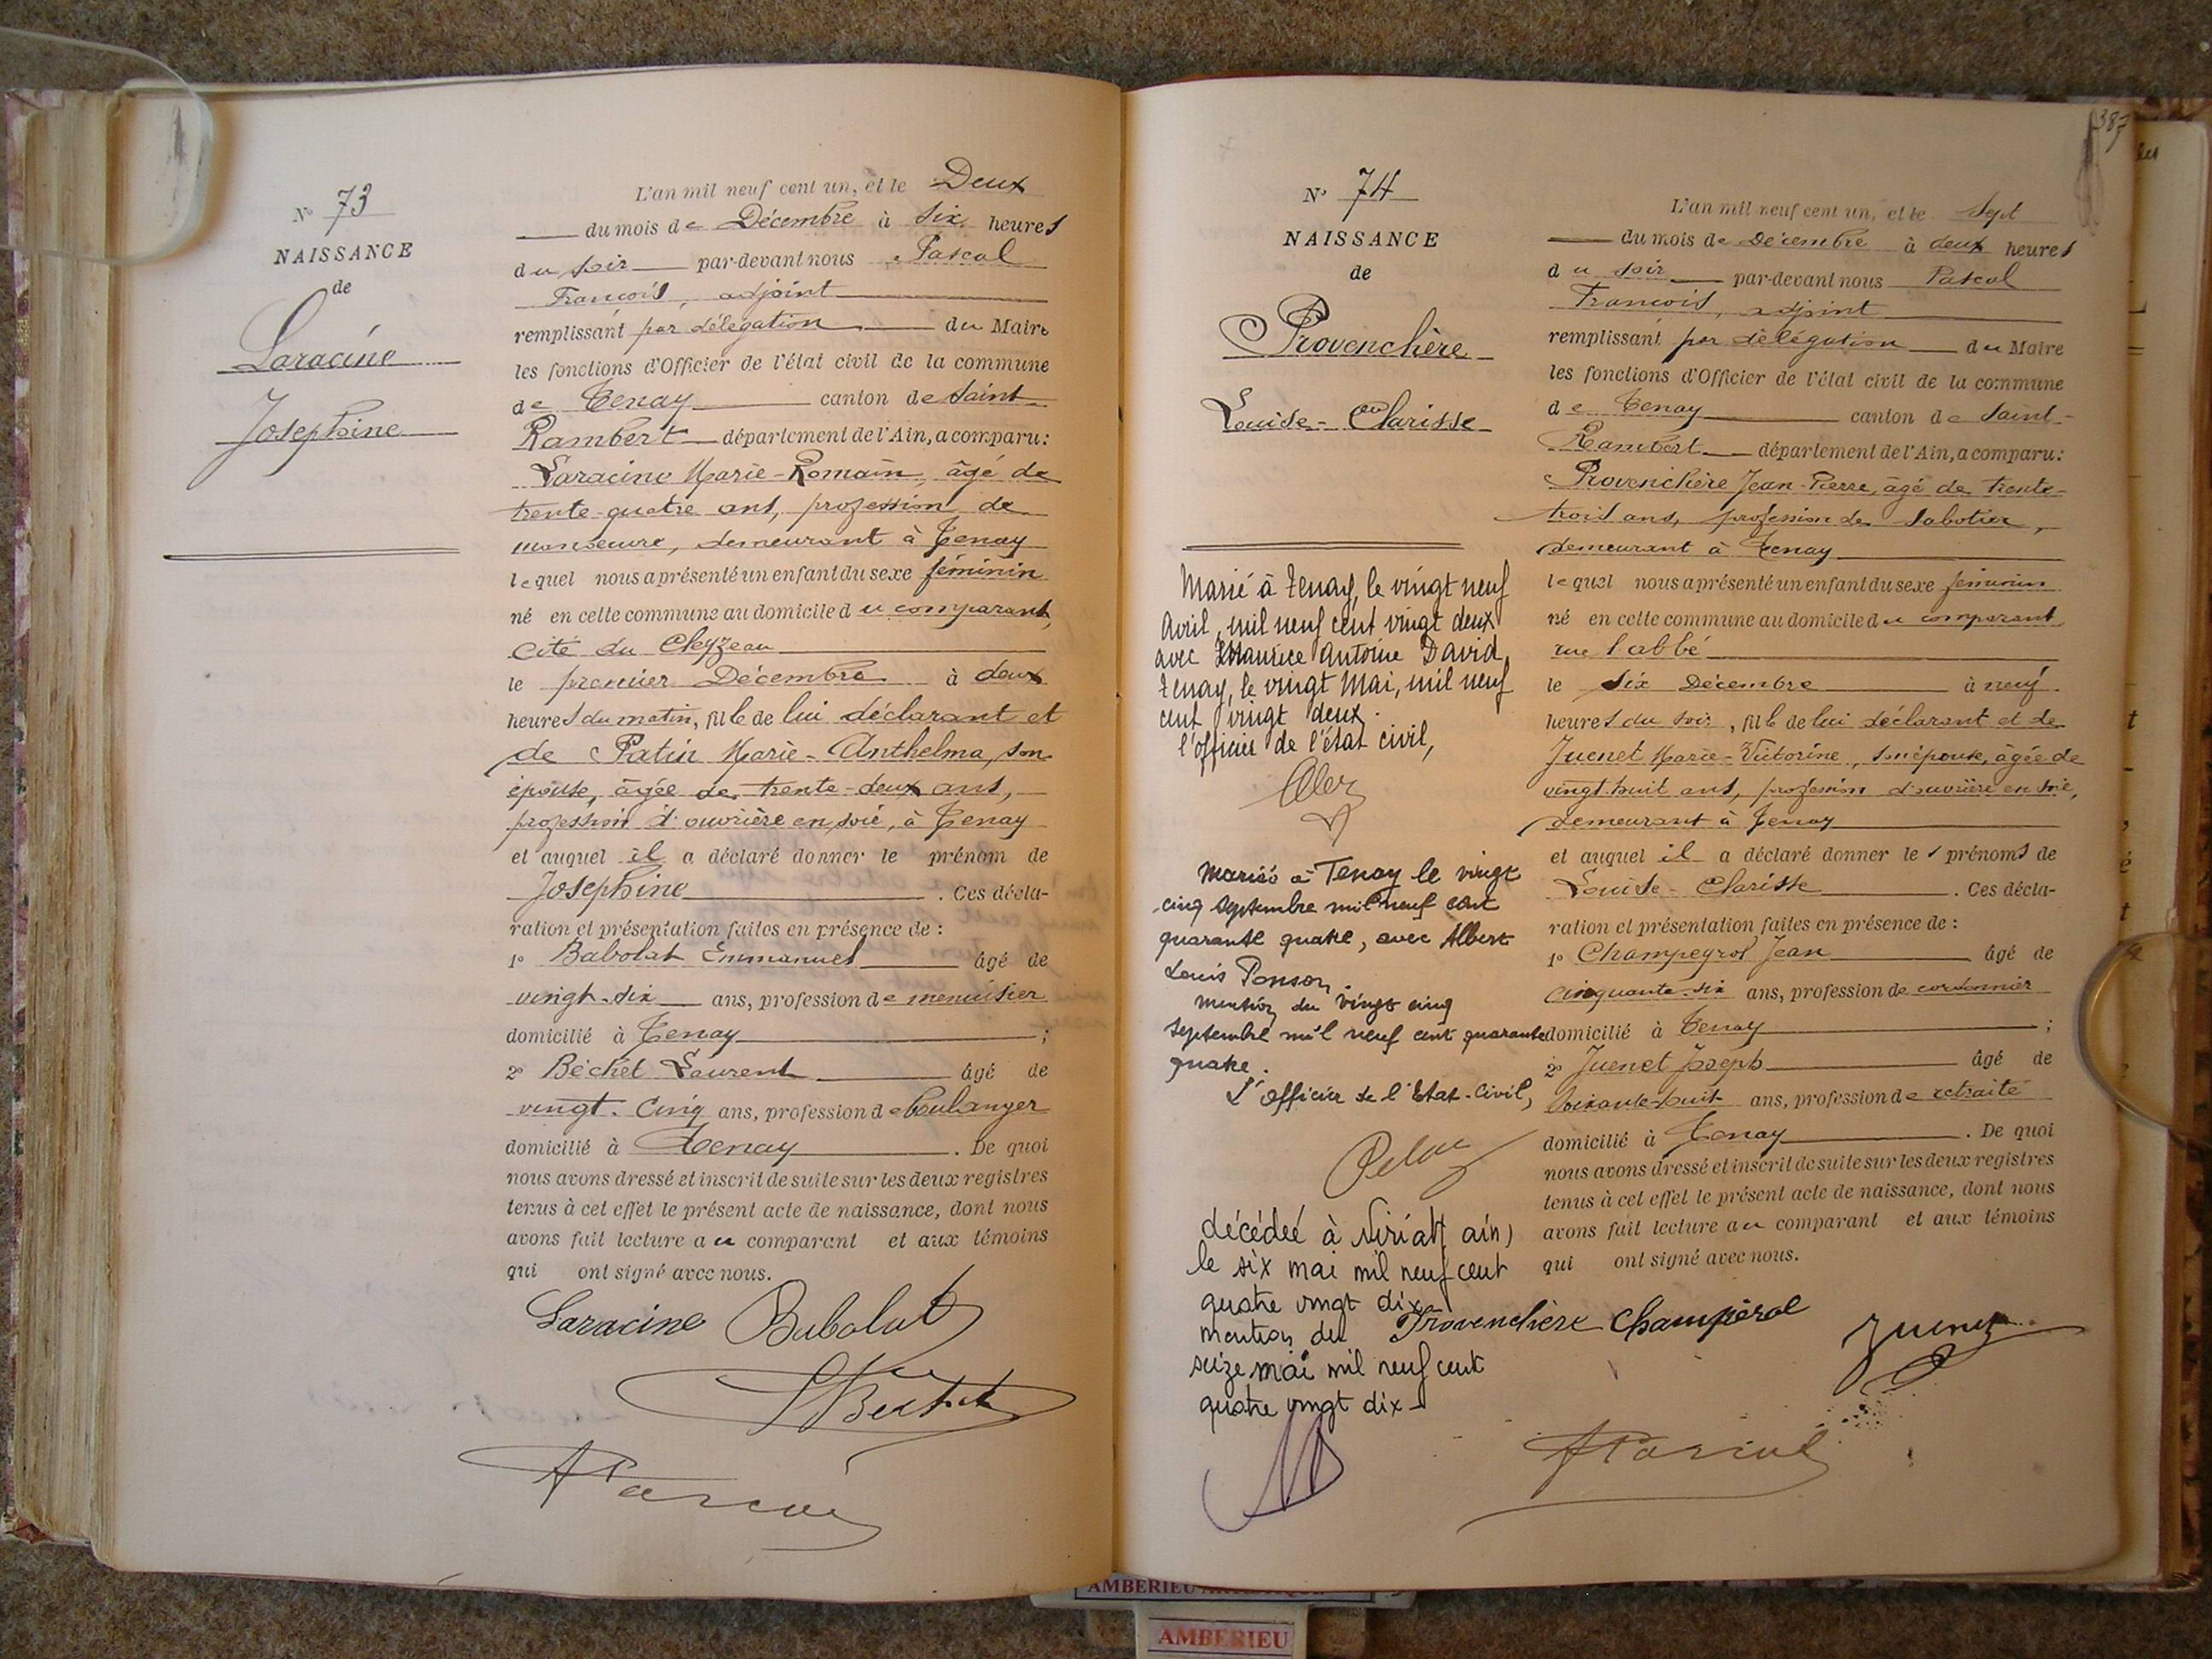 N° 73
NAISSANCE
de
Laracine
Josephine
L'an mil neuf cent un, et le Deux
du mois de Décembre à six heures
du soir par-devant nous Pascal
François, adjoint
remplissant par délégation du Maire
les fonctions d'Officier de l'état civil de la commune
de Tenay canton de Saint-
Rambert département de l'Ain, a comparu:
Laracine Marie-Romain, âgé de
trente-quatre ans, profession de
manoeuvre, demeurant à Tenay
lequel nous a présenté un enfant du sexe féminin
né en cette commune au domicile du comparant,
cité du Cleyzeau
le premier Décembre à deux
heures du matin, fille de lui déclarant et
de Patin Marie-Anthelma, son
épouse, âgée de trente-deux ans,
profession d'ouvrière en soie, à Tenay
et auquel il a déclaré donner le prénom de
Josephine. Ces décla-
ration et présentation faites en présence de :
1° Babolat Emmanuel âgé de
vingt-six ans, profession de menuisier
domicilié à Tenay ;
2° Béchet Laurent âgé de
vingt-cinq ans, profession de boulanger
domicilié à Tenay. De quoi
nous avons dressé et inscrit de suite sur les deux registres
tenus à cet effet le présent acte de naissance, dont nous
avons fait lecture au comparant et aux témoins
qui ont signé avec nous.
Laracine Babolat
LBechet
FPascal
387
N° 74
NAISSANCE
de
Provenchère
Louise-Clarisse
Marié à Tenay, le vingt neuf
Avril, mil neuf cent vingt deux
avec Maurice Antoine David,
Tenay, le vingt Mai, mil neuf
cent vingt deux.
l'officier de l'état civil,
Mariée à Tenay le vingt
cinq septembre mil neuf cent
quarante quatre, avec Albert
Louis Ponson.
Mention du vingt cinq
septembre mil neuf cent quarante
quatre.
L'officier de l'Etat-Civil,
décédée à Viriat (ain)
le six mai mil neuf cent
quatre vingt dix
mention du
seize mai mil neuf cent
quatre vingt dix
L'an mil neuf cent un, et le Sept
du mois de Décembre à deux heures
du soir par-devant nous Pascal
François, adjoint
remplissant par délégation du Maire
les fonctions d'Officier de l'état civil de la commune
de Tenay canton de Saint-
Rambert département de l'Ain, a comparu:
Provenchère Jean-Pierre, âgé de trente-
trois ans, profession de sabotier,
demeurant à Tenay
lequel nous a présenté un enfant du sexe féminin
né en cette commune au domicile du comparant
rue l'abbé
le six Décembre à neuf
heures du soir, fille de lui déclarant et de
Juenet Marie-Victorine, son épouse, âgée de
vingt-huit ans, profession d'ouvrière en soie,
demeurant à Tenay
et auquel il a déclaré donner les prénoms de
Louise-Clarisse. Ces décla-
ration et présentation faites en présence de :
1° Champeyrol Jean âgé de
cinquante-six ans, profession de cordonnier
domicilié à Tenay ;
2° Juenet Joseph âgé de
soixante-huit ans, profession de retraité
domicilié à Tenay. De quoi
nous avons dressé et inscrit de suite sur les deux registres
tenus à cet effet le présent acte de naissance, dont nous
avons fait lecture au comparant et aux témoins
qui ont signé avec nous.
Provenchère Champérol Juenet
FPascal
AMBERIEU
AMBERIEU